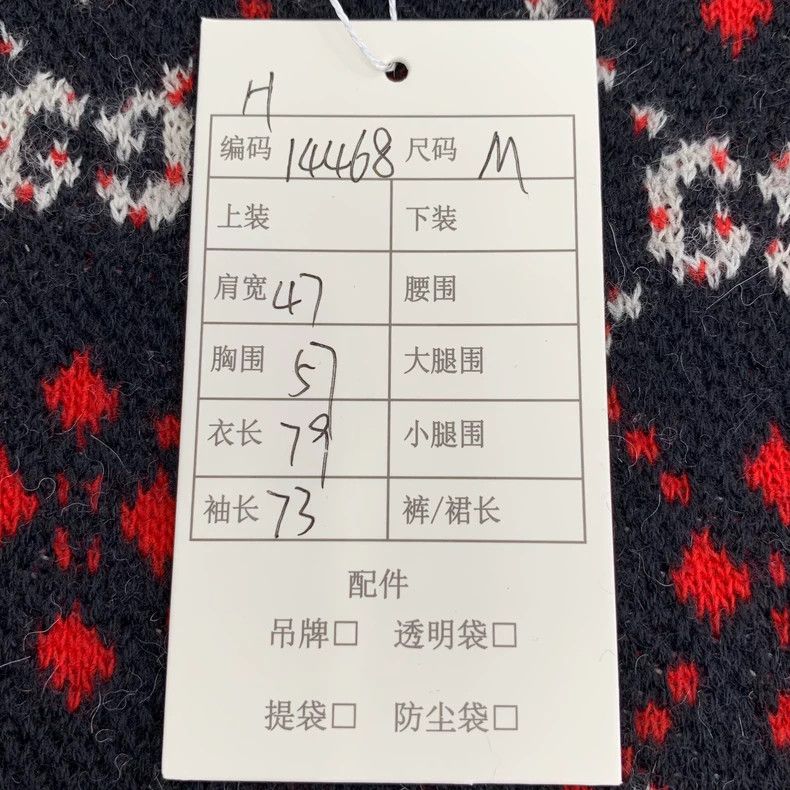 H
编码 14468 尺码 M
上装 下装
肩宽 47 腰围
胸围 57 大腿围
衣长 79 小腿围
袖长 73 裤/裙长
配件
吊牌□ 透明袋□
提袋□ 防尘袋□